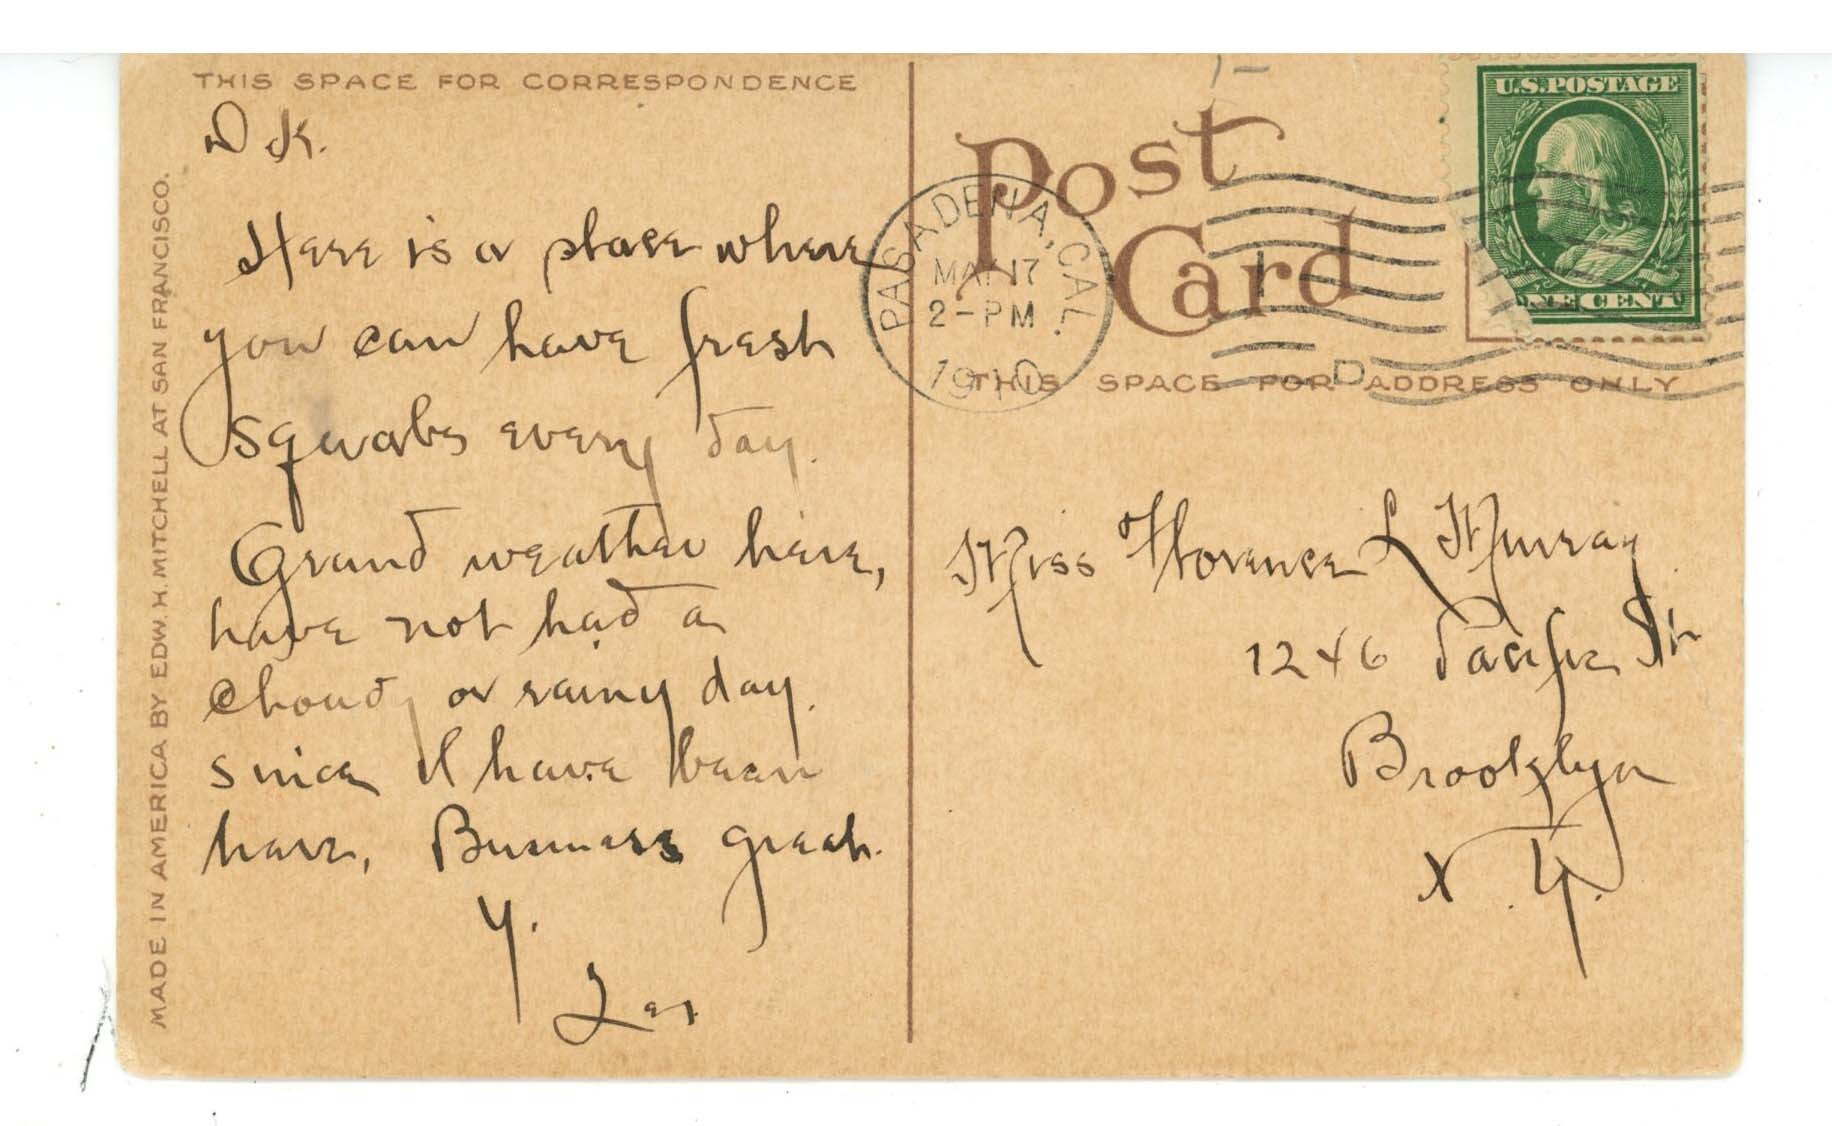 THIS SPACE FOR CORRESPONDENCE
D K.
Here is a place where
you can have fresh
squabs every day.
Grand weather here,
have not had a
cloudy or rainy day
since I have been
here, Business great.
Y.
Les
MADE IN AMERICA BY EDW. H. MITCHELL AT SAN FRANCISCO.
Post
Card
PASADENA, CAL.
MAY 17
2-PM
1910
D
U.S. POSTAGE
ONE CENT
THIS SPACE FOR ADDRESS ONLY
Miss Florence L Murray
1246 Pacific St
Brooklyn
N.Y.